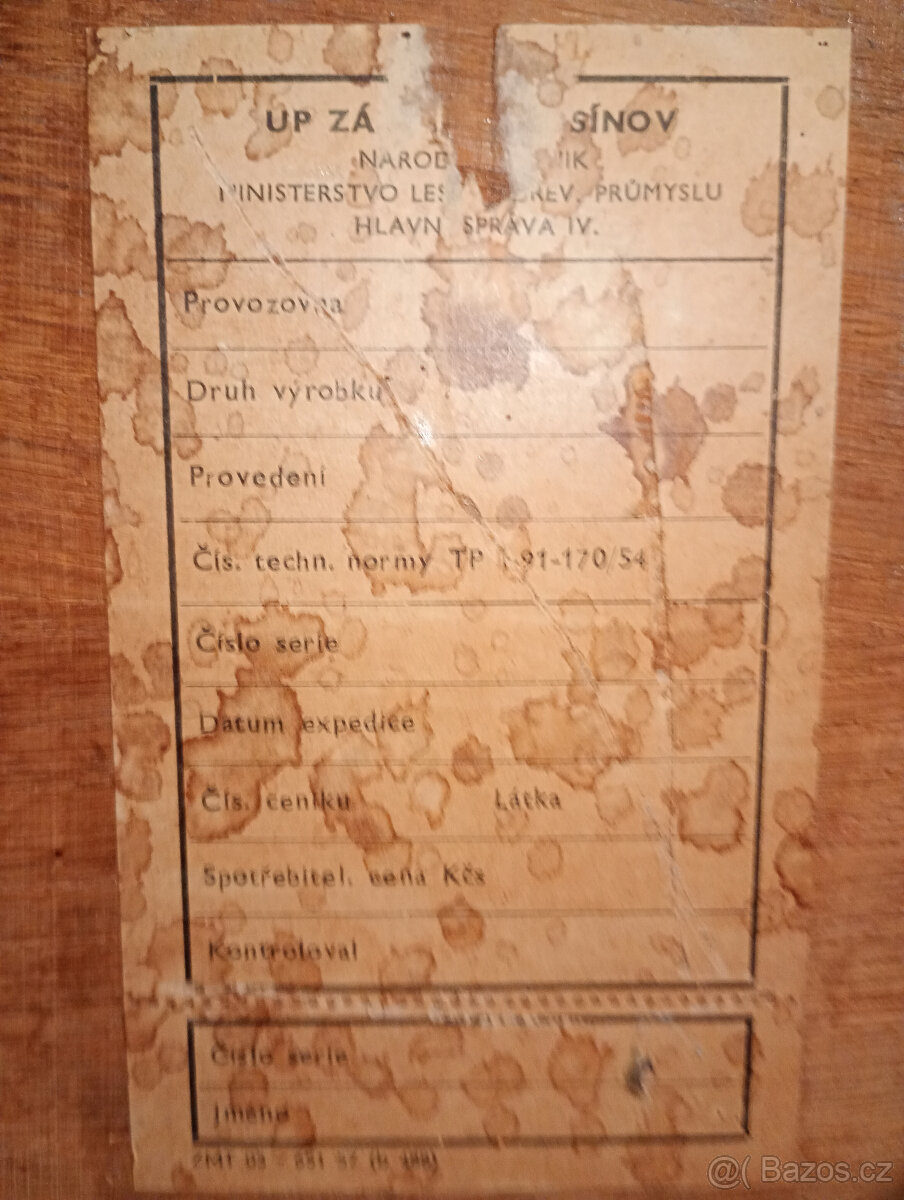 ÚP ZÁ SÍNOV
NÁROD NIK
MINISTERSTVO LES DŘEV. PRŮMYSLU
HLAVN SPRÁVA IV.
Provozovna
Druh výrobku
Provedení
Čís. techn. normy TP 1-91-170/54
Číslo serie
Datum expedice
Čís. ceníku Látka
Spotřebitel. cena Kčs
Kontroloval
Číslo serie
Jméno
@( Bazos.cz